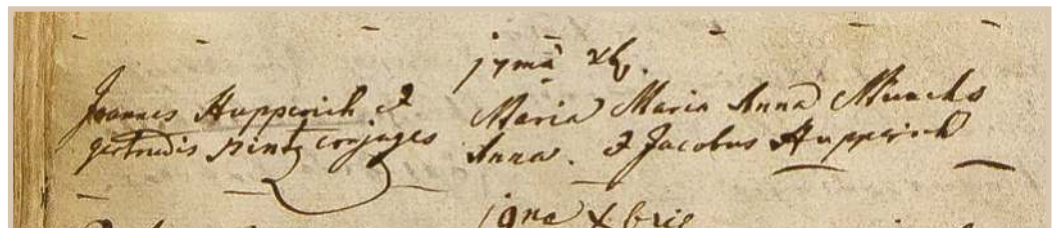 17mâ xb.
Joannes Hupperich &
gertrudis conjuges
Maria
Anna.
Maria Anna Muachs
& Jacobus Hupperich
19na Xbris